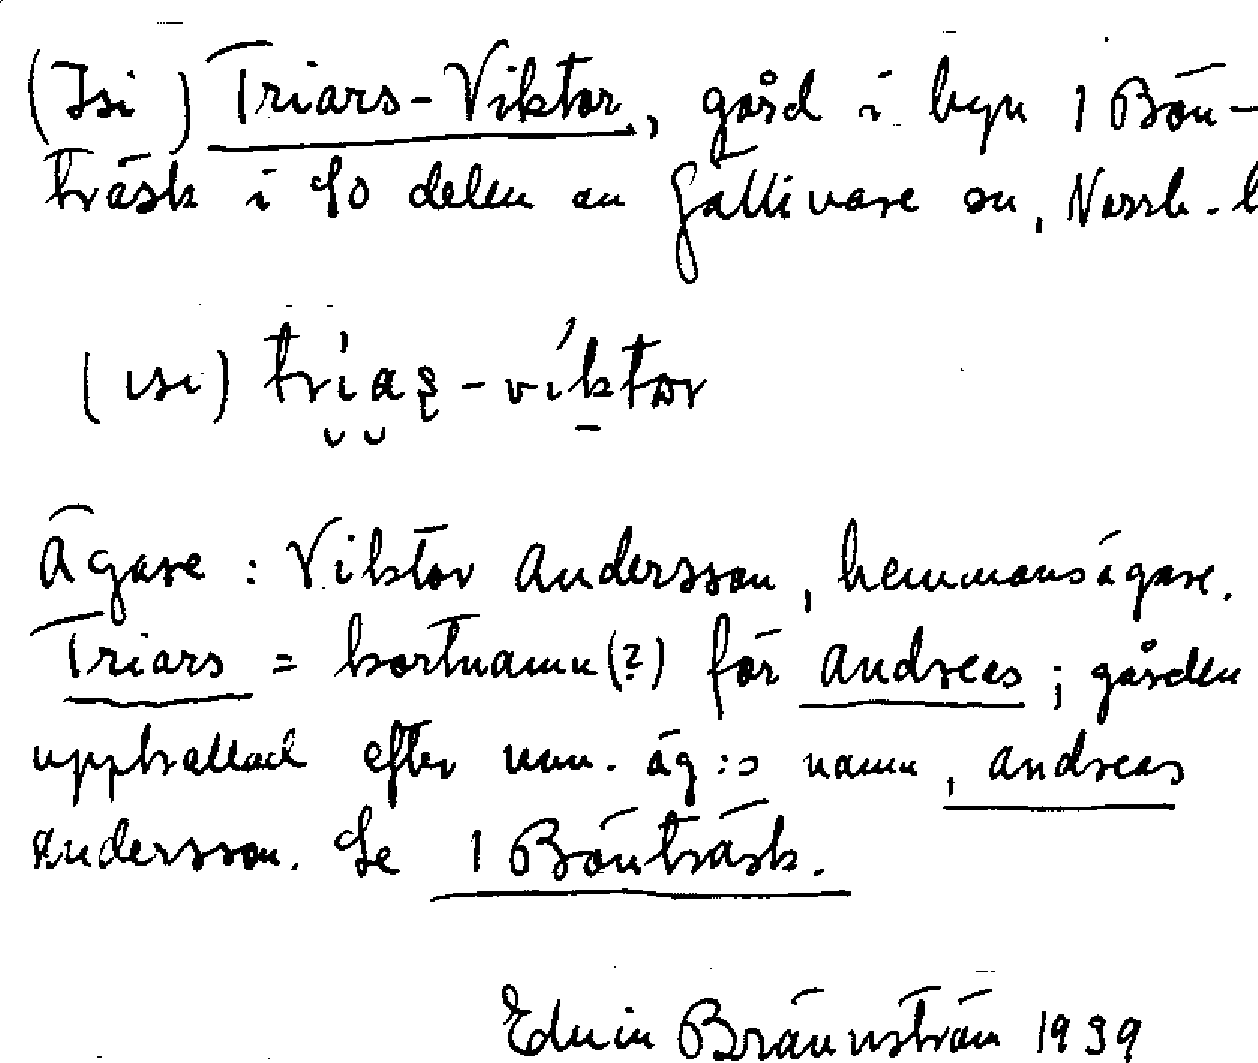 (Isi) Triars-Viktor, gård i byn 1 Bön-
träsk i SO delen av Gällivare sn, Norrb. l
(isi) trías-víktor
Ägare: Viktor Andersson, hemmansägare.
Triars = kortnamn(?) för Andreas; gården
uppkallad efter nuv. äg:s namn, Andreas
Andersson. Se 1 Bönträsk.
Edvin Brännström 1939